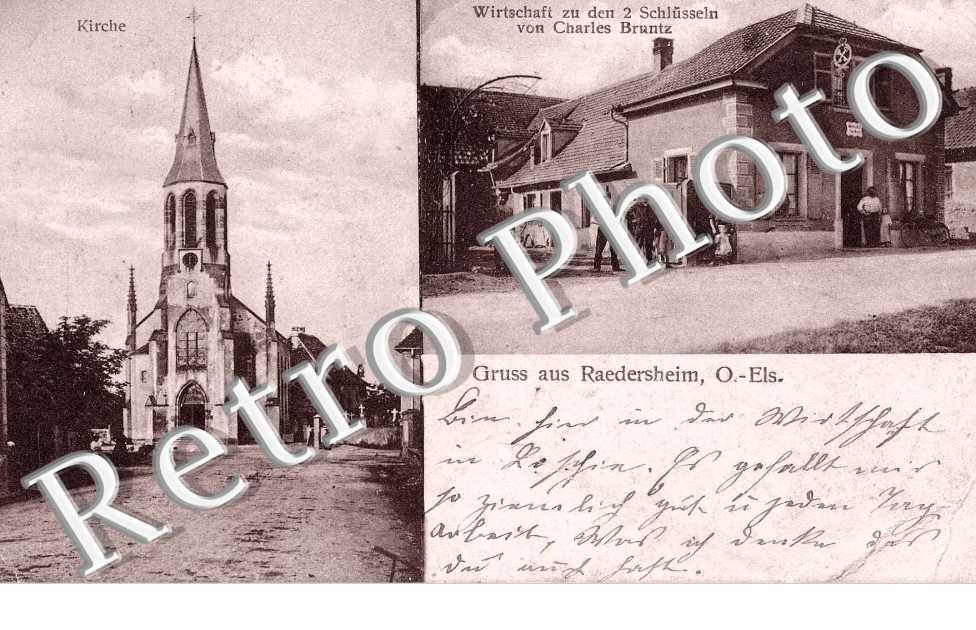 Kirche
Wirtschaft zu den 2 Schlüsseln
von Charles Bruntz
Retro Photo
Gruss aus Raedersheim, O.-Els.
Bin hier in der Wirtschaft
in . Es gefällt mir
so ziemlich gut u jeden Tag
arbeit, Was ich denke das
Du auch hast.